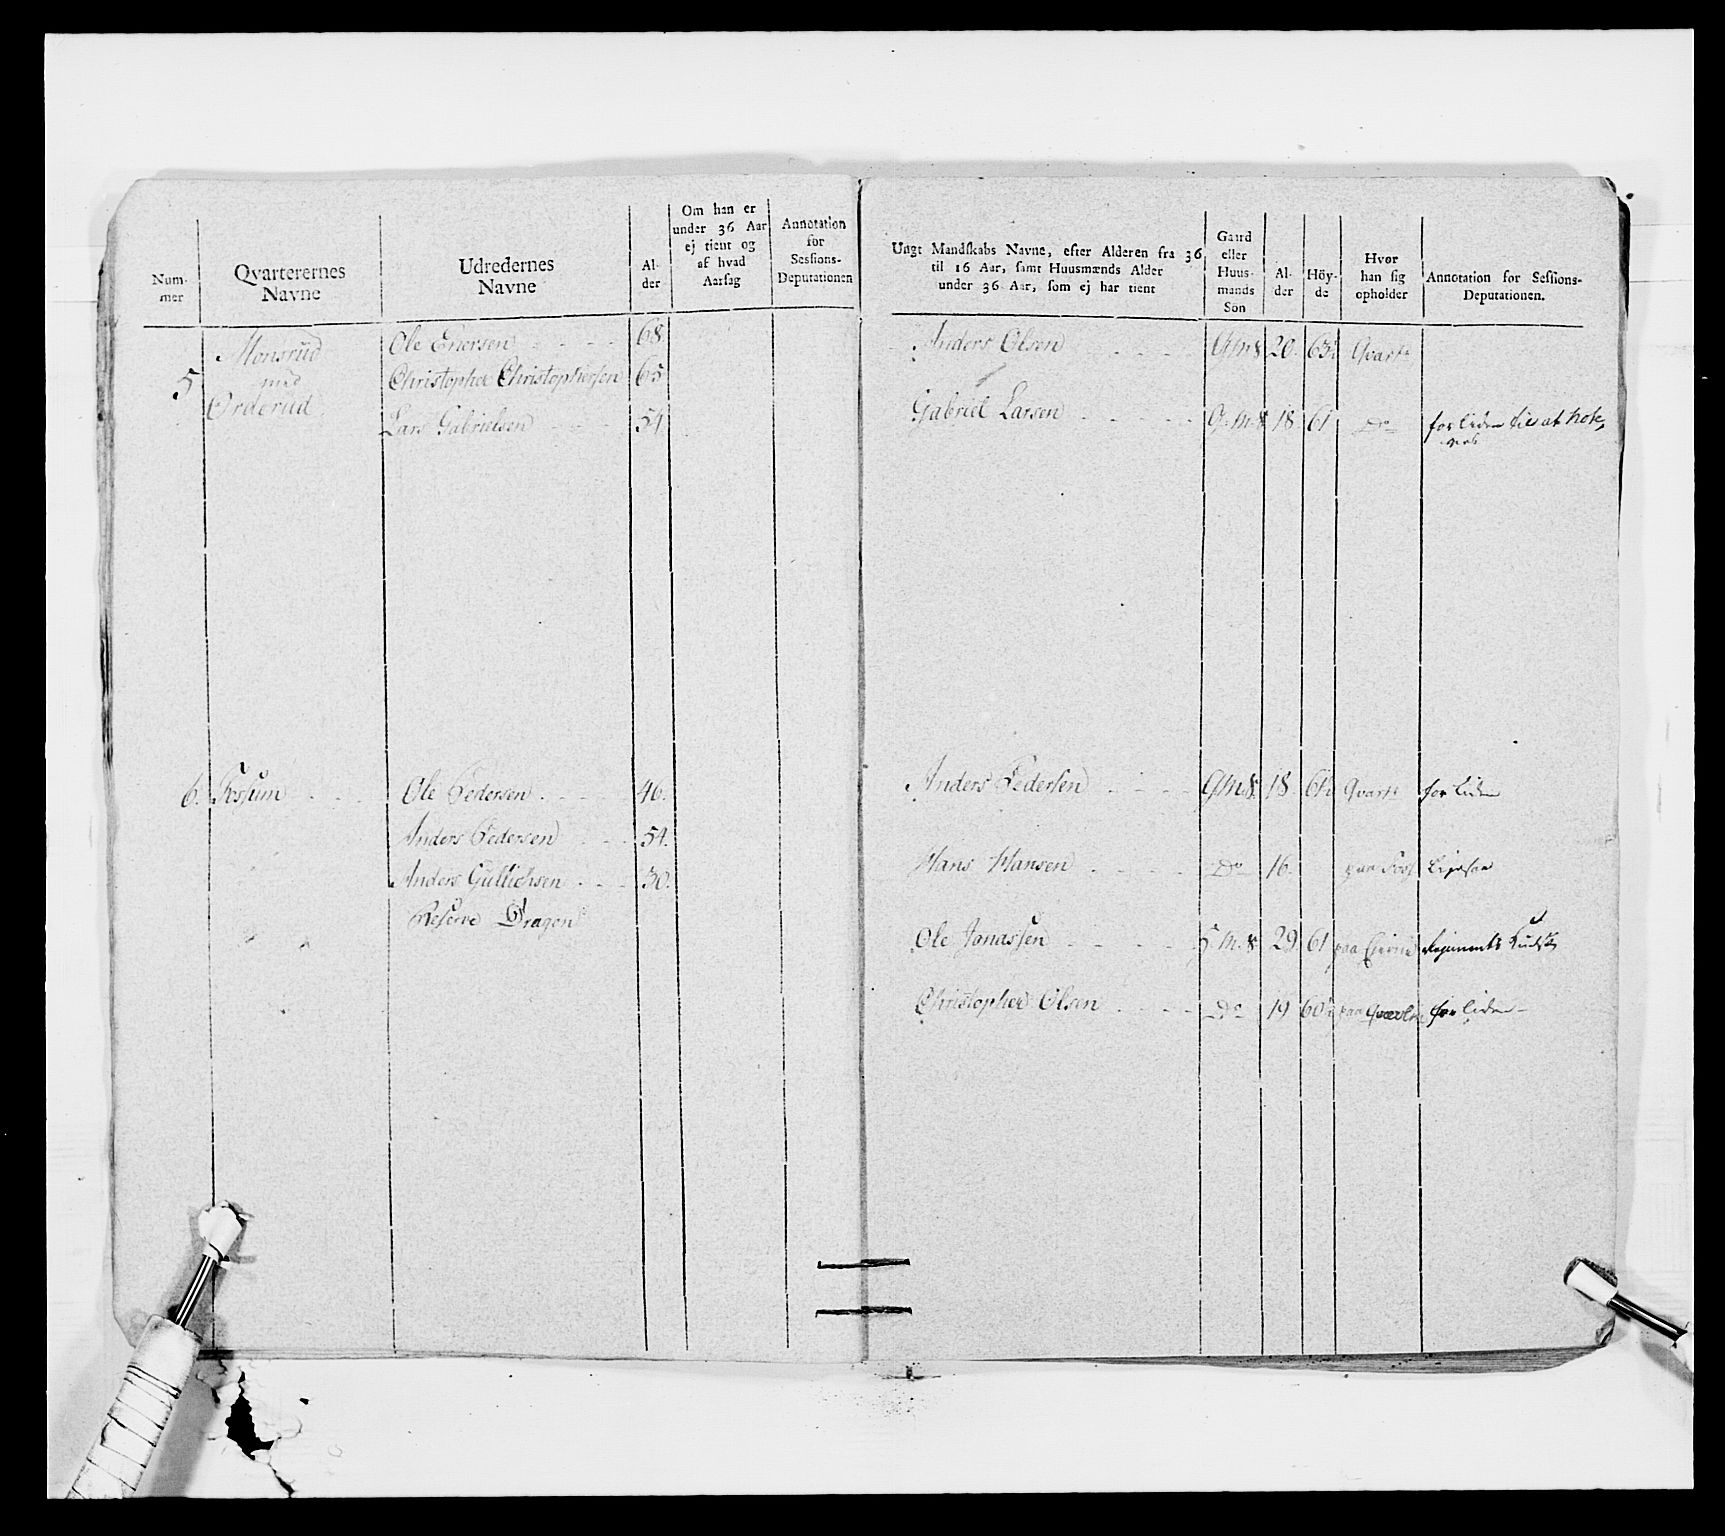 Num-
mer
Qvarterernes
Navne
Udredernes
Navne
Al-
der
Om han er
under 36 Aar
ej tient og
af hvad
Aarsag
Annotation
for
Sessions-
Deputationen
5
Monsrud
med
Ørderud
Ole Enersen 68
Christopher Christophersen 65
Lars Gabrielsen 54
6. Fossum Ole Pedersen 46.
Anders Pedersen 54.
Anders Gullichsen 30.
Reserve Dragon
Ungt Mandskabs Navne, efter Alderen fra 36
til 16 Aar, samt Huusmænds Alder
under 36 Aar, som ej har tient
Gaard
eller
Huus-
mands
Sön
Al-
der
Höy-
de
Hvor
han sig
opholder
Annotation for Sessions-
Deputationen.
Anders Olsen G.m.S. 20. Qvart
Gabriel Larsen G.m.S. 18 61 Do for liden til at
Anders Pedersen G.M.S. 18. Qvart for liden
Hans Hansen Do 16. paa
Ole Janassen H.M.S. 29 61 paa Regiments
Christopher Olsen Do 19 paa for liden